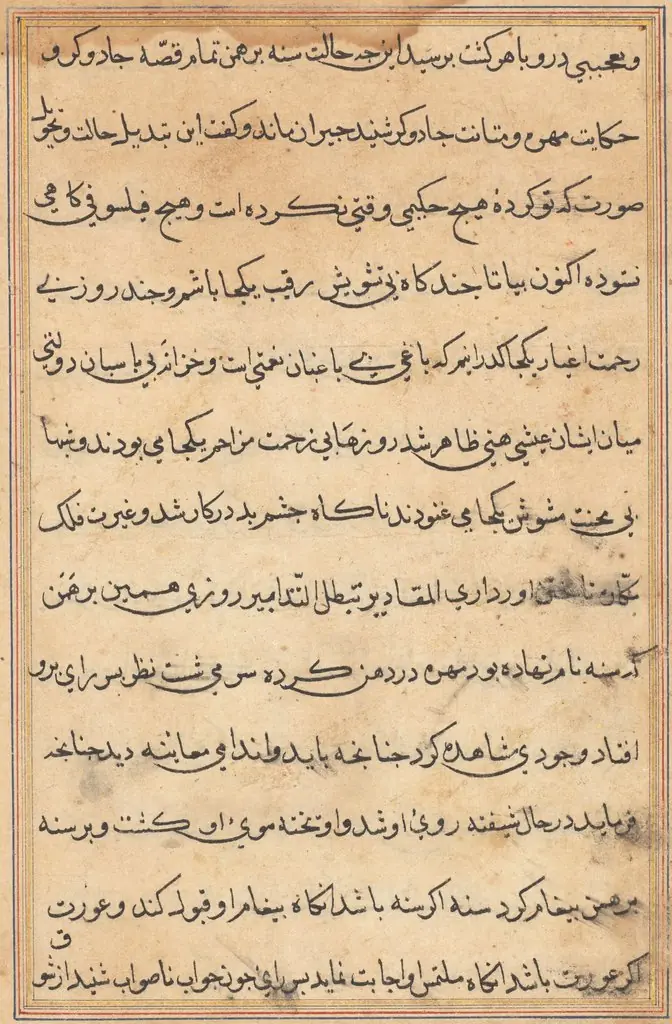 و تعجبی درو باهر کشت برسید این جه حالت سنه برهمن تمام قصّه جادوکر و
حکایت مهره و متانت جادوکر شنید حیران ماند و کفت این تبدیل حالت و تحویل
صورت که تو کردهٔ هیج حکیمی وقتی نکرده است و هیج فیلسوفی کاهی
نستوده اکنون بیا تا جند کاه بی تشویش رقیب یکجا باشم و جند روز بی
زحمت اغیار یکجا کدرانیم که باغی بی باغبان نعمتی است و خزانه بی باسبان دولتی
میان ایشان عیشی هنی ظاهر شد روزهابی زحمت مزاحم یکجا می بودند و شبها
بی محنت مشوش یکجا می غنودند ناکاه جشم بد در کار شد و غیرت فلک
اورد اری المقادیر تبطل التدابیر روزی همین برهمن
که سنه نام نهاده بود مهره در دهن کرده سر می شست نظر بسر رای برو
افتاد وجودی مشاهده کرد جنانجه باید و اندامی معاینه دید جنانجه
فرماید در حال شیفته روی او شد و اوتخته موی او کشت و بر سنه
برهمن بیغام کرد سنه اکر سنه باشد انکاه بیغام او قبول کند و عورت
اکر عورت باشد انکاه ملتمس او اجابت نماید بسر رای جون جواب ناصواب شنید از شو
ق